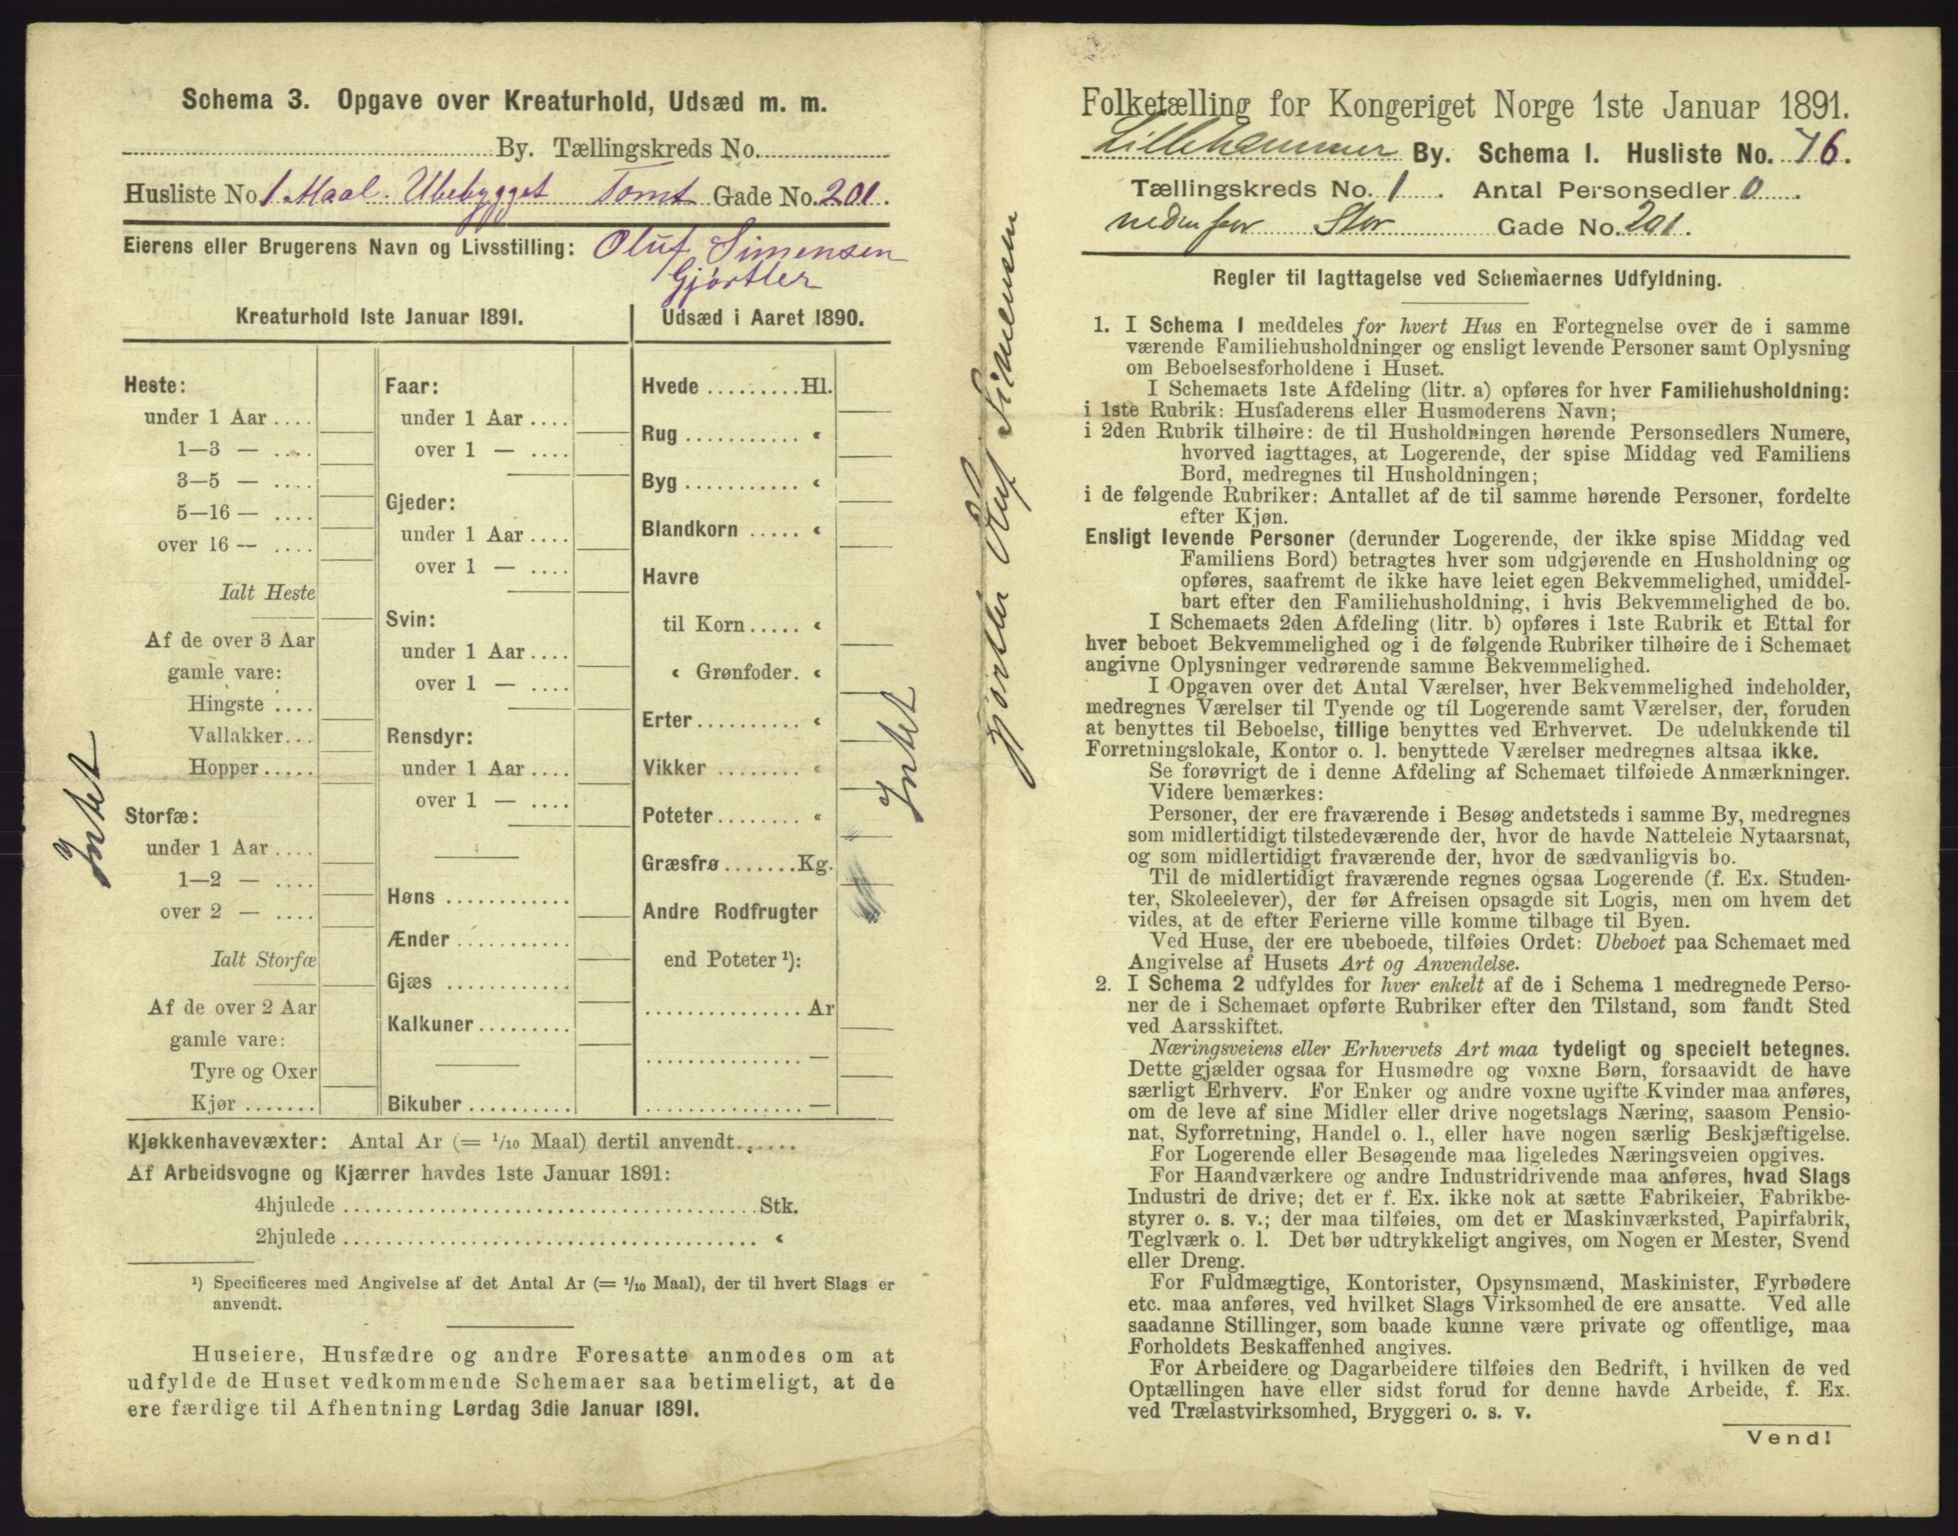 Schema 3. Opgave over Kreaturhold, Udsæd m. m.
By. Tællingskreds No.
Husliste No. 1 Maal. Ubebygget Tomt Gade No. 201.
Eierens eller Brugerens Navn og Livsstilling: Oluf Simensen
Gjørtler
Kreaturhold 1ste Januar 1891.
Heste:
under 1 Aar ....
1—3 — ....
3—5 — ....
5—16 — ....
over 16 — ....
Ialt Heste
Af de over 3 Aar
gamle vare:
Hingste ....
Vallakker...
Hopper.....
Storfæ:
under 1 Aar ....
1—2 — ....
over 2 — ....
Ialt Storfæ
Af de over 2 Aar
gamle vare:
Tyre og Oxer
Kjør .......
Intet
Faar:
under 1 Aar ....
over 1 — ....
Gjeder:
under 1 Aar ....
over 1 — ....
Svin:
under 1 Aar ....
over 1 — ....
Rensdyr:
under 1 Aar ....
over 1 — ....
Høns ............
Ænder ...........
Gjæs ............
Kalkuner.........
Bikuber ..........
Udsæd i Aaret 1890.
Hvede .........Hl.
Rug ........... «
Byg ........... «
Blandkorn ..... «
Havre
til Korn ..... «
« Grønfoder. «
Erter.......... «
Vikker ......... «
Poteter........ «
Græsfrø .......Kg.
Andre Rodfrugter
end Poteter ¹):
............... Ar
............... —
............... —
Intet
Kjøkkenhavevæxter: Antal Ar (= 1/10 Maal) dertil anvendt.......
Af Arbeidsvogne og Kjærrer havdes 1ste Januar 1891:
4hjulede .......................................Stk.
2hjulede ....................................... «
¹) Specificeres med Angivelse af det Antal Ar (= 1/10 Maal), der til hvert Slags er
anvendt.
Huseiere, Husfædre og andre Foresatte anmodes om at
udfylde de Huset vedkommende Schemaer saa betimeligt, at de
ere færdige til Afhentning Lørdag 3die Januar 1891.
Gjørtler Oluf Simensen
Folketælling for Kongeriget Norge 1ste Januar 1891.
Lillehammer By. Schema 1. Husliste No. 76.
Tællingskreds No. 1. Antal Personsedler 0.
nedenfor Stor Gade No. 201.
Regler til Iagttagelse ved Schemaernes Udfyldning.
1. I Schema 1 meddeles for hvert Hus en Fortegnelse over de i samme
værende Familiehusholdninger og ensligt levende Personer samt Oplysning
om Beboelsesforholdene i Huset.
I Schemaets 1ste Afdeling (litr. a) opføres for hver Familiehusholdning:
i 1ste Rubrik: Husfaderens eller Husmoderens Navn;
i 2den Rubrik tilhøire: de til Husholdningen hørende Personsedlers Numere,
hvorved iagttages, at Logerende, der spise Middag ved Familiens
Bord, medregnes til Husholdningen;
i de følgende Rubriker: Antallet af de til samme hørende Personer, fordelte
efter Kjøn.
Ensligt levende Personer (derunder Logerende, der ikke spise Middag ved
Familiens Bord) betragtes hver som udgjørende en Husholdning og
opføres, saafremt de ikke have leiet egen Bekvemmelighed, umiddel-
bart efter den Familiehusholdning, i hvis Bekvemmelighed de bo.
I Schemaets 2den Afdeling (litr. b) opføres i 1ste Rubrik et Ettal for
hver beboet Bekvemmelighed og i de følgende Rubriker tilhøire de i Schemaet
angivne Oplysninger vedrørende samme Bekvemmelighed.
I Opgaven over det Antal Værelser, hver Bekvemmelighed indeholder,
medregnes Værelser til Tyende og til Logerende samt Værelser, der, foruden
at benyttes til Beboelse, tillige benyttes ved Erhvervet. De udelukkende til
Forretningslokale, Kontor o. l. benyttede Værelser medregnes altsaa ikke.
Se forøvrigt de i denne Afdeling af Schemaet tilføiede Anmærkninger.
Videre bemærkes:
Personer, der ere fraværende i Besøg andetsteds i samme By, medregnes
som midlertidigt tilstedeværende der, hvor de havde Natteleie Nytaarsnat,
og som midlertidigt fraværende der, hvor de sædvanligvis bo.
Til de midlertidigt fraværende regnes ogsaa Logerende (f. Ex. Studen-
ter, Skoleelever), der før Afreisen opsagde sit Logis, men om hvem det
vides, at de efter Ferierne ville komme tilbage til Byen.
Ved Huse, der ere ubeboede, tilføies Ordet: Ubeboet paa Schemaet med
Angivelse af Husets Art og Anvendelse.
2. I Schema 2 udfyldes for hver enkelt af de i Schema 1 medregnede Perso-
ner de i Schemaet opførte Rubriker efter den Tilstand, som fandt Sted
ved Aarsskiftet.
Næringsveiens eller Erhvervets Art maa tydeligt og specielt betegnes.
Dette gjælder ogsaa for Husmødre og voxne Børn, forsaavidt de have
særligt Erhverv. For Enker og andre voxne ugifte Kvinder maa anføres,
om de leve af sine Midler eller drive nogetslags Næring, saasom Pensio-
nat, Syforretning, Handel o. l., eller have nogen særlig Beskjæftigelse.
For Logerende eller Besøgende maa ligeledes Næringsveien opgives.
For Haandværkere og andre Industridrivende maa anføres, hvad Slags
Industri de drive; det er f. Ex. ikke nok at sætte Fabrikeier, Fabrikbe-
styrer o. s. v.; der maa tilføies, om det er Maskinværksted, Papirfabrik,
Teglværk o. l. Det bør udtrykkeligt angives, om Nogen er Mester, Svend
eller Dreng.
For Fuldmægtige, Kontorister, Opsynsmænd, Maskinister, Fyrbødere
etc. maa anføres, ved hvilket Slags Virksomhed de ere ansatte. Ved alle
saadanne Stillinger, som baade kunne være private og offentlige, maa
Forholdets Beskaffenhed angives.
For Arbeidere og Dagarbeidere tilføies den Bedrift, i hvilken de ved
Optællingen have eller sidst forud for denne havde Arbeide, f. Ex.
ved Trælastvirksomhed, Bryggeri o. s. v.
Vend!